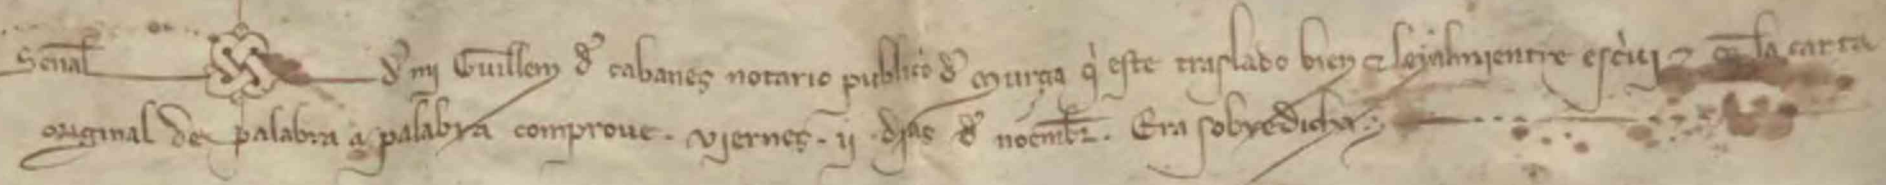 Senal de mi Guillem de cabanes notario publico de Murça q̉ este traslado bien ⁊ lejalmientre escͥui ⁊ con la carta
original de palabra a palabra comproue . viernes . ij . djas de nouembr̃ . Era sobredicha .